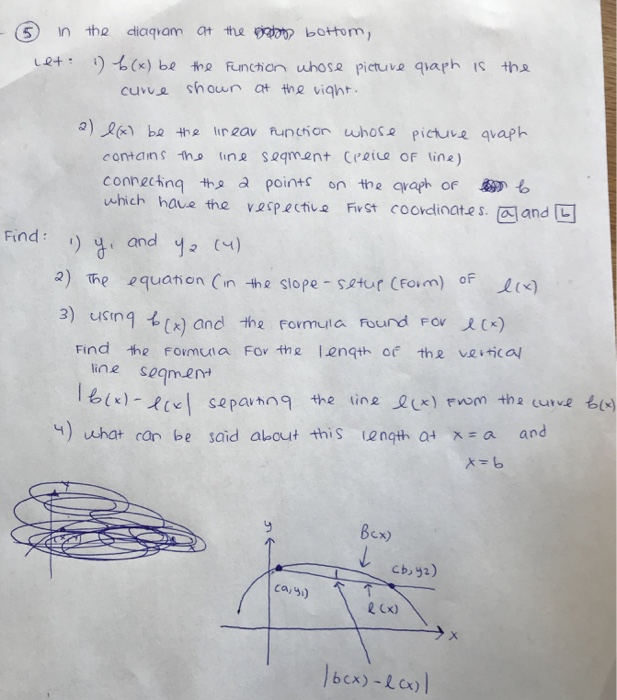 ⑤ in the diagram at the bottom,
Let: 1) b(x) be the function whose picture graph is the
curve shown at the right.
2) l(x) be the linear function whose picture graph
contains the line segment (peice of line)
connecting the 2 points on the graph of b
which have the respective first coordinates. a and b
Find: 1) y₁ and y₂ (4)
2) The equation (in the slope-setup (form) of l(x)
3) using b(x) and the formula found for l(x)
Find the formula for the length of the vertical
line segment
|b(x) - l(x)| separting the line l(x) from the curve b(x)
4) what can be said about this length at x = a and
x = b
y
B(x)
(b, y2)
(a, y1)
l(x)
x
|b(x) - l(x)|